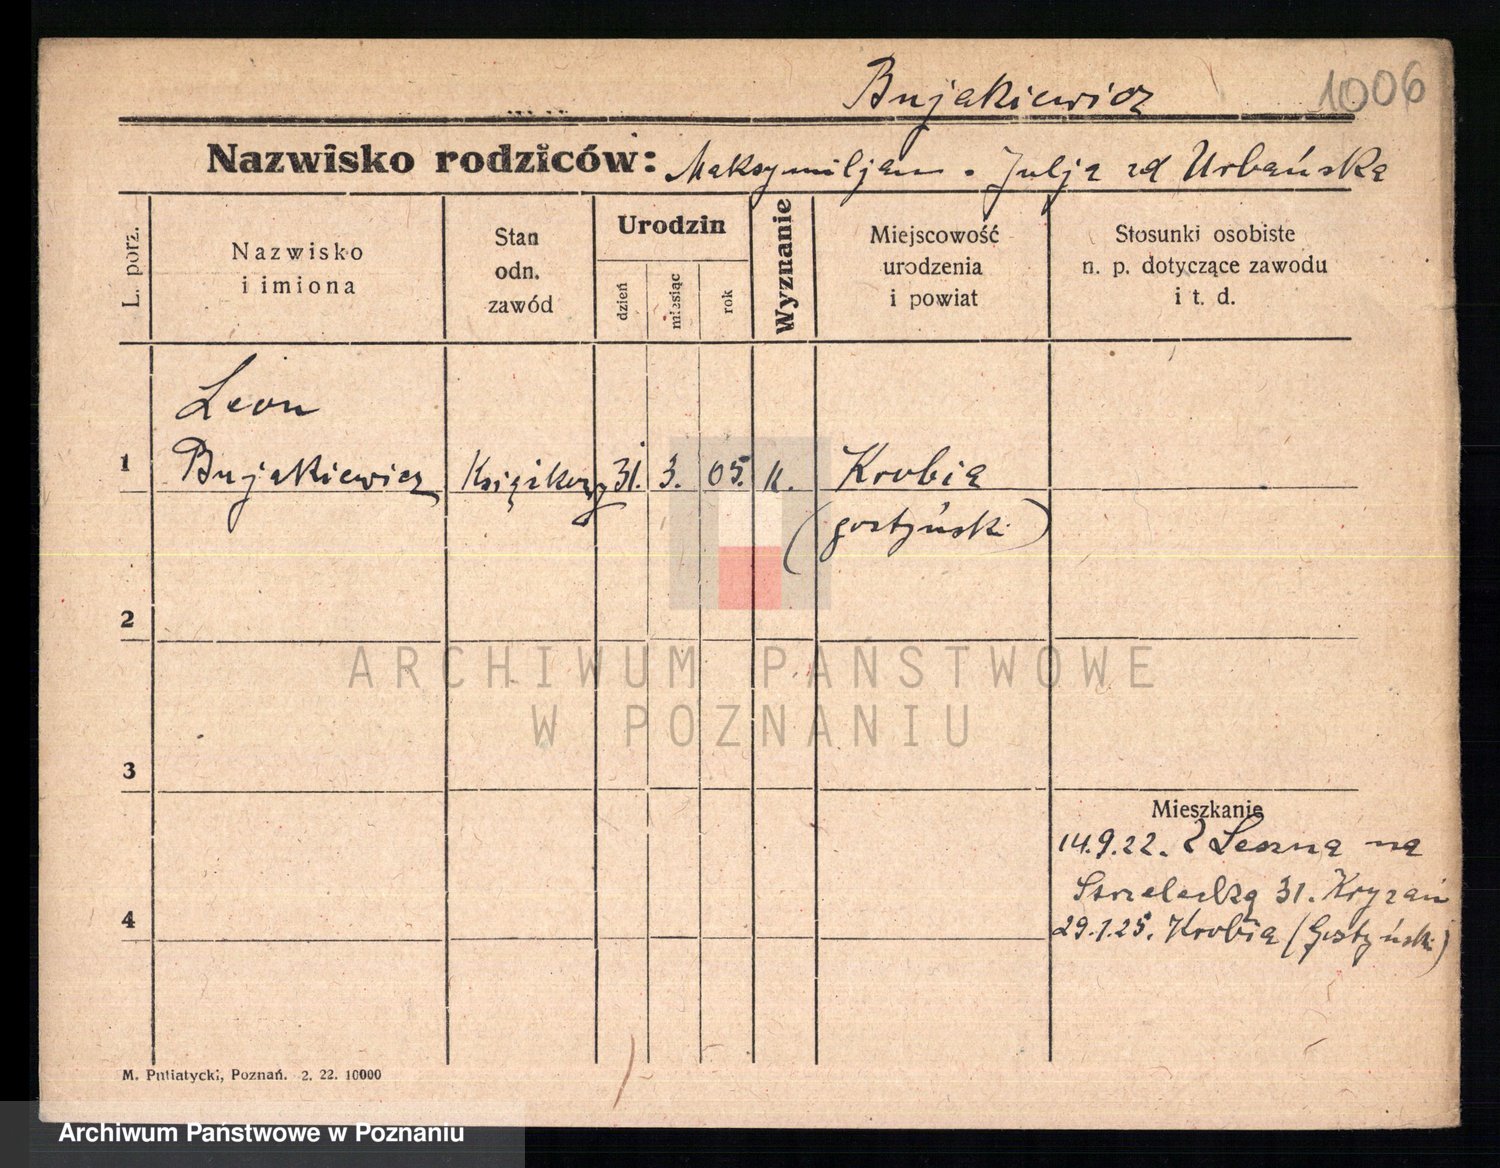 Bujakiewicz
1006
Nazwisko rodziców: Maksymiljan. Julja zd Urbańska
L. porz.
Nazwisko
i imiona
Stan
odn.
zawód
Urodzin
dzień
miesiąc
rok
Wyznanie
Miejscowość
urodzenia
i powiat
Stosunki osobiste
n. p. dotyczące zawodu
i t. d.
Leon
1 Bujakiewicz 31. 3. 05. k. Krobia
(gostyński)
2
ARCHIWUM PAŃSTWOWE
W POZNANIU
3
Mieszkanie
14.9.22. Z Leszna na
Strzelecką 31.
4
29.1.25. Krobia (Gostyński)
M. Putiatycki, Poznań. 2. 22. 10000
Archiwum Państwowe w Poznaniu